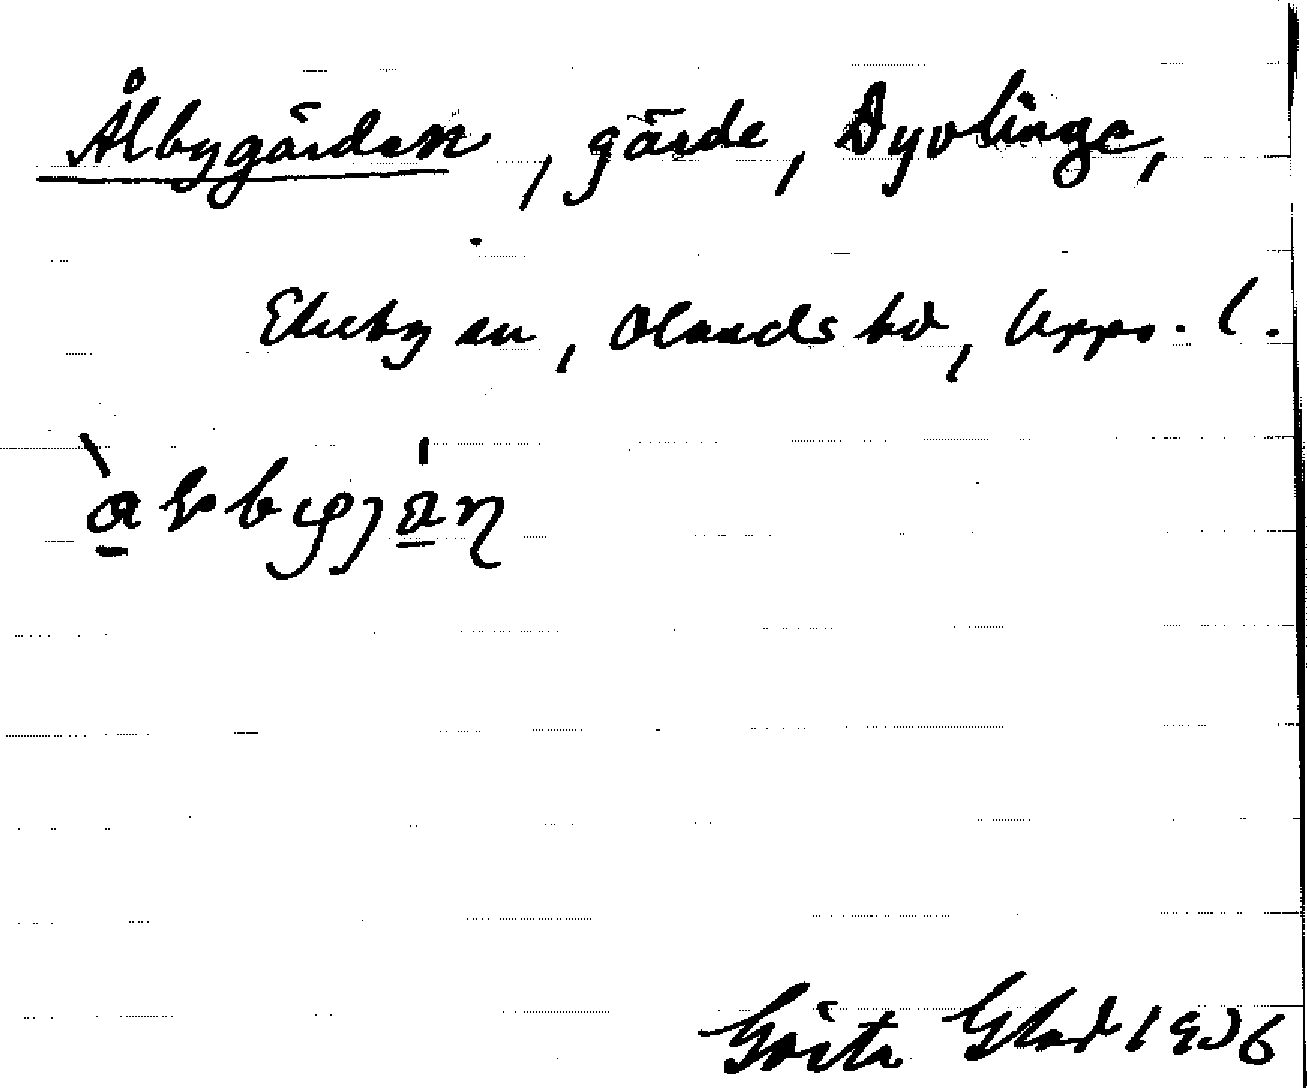 Ålbygärden, gärde, Dyvlinge,
Ekeby sn, Olands hd, Upps. l.
Gösta Glad 1936